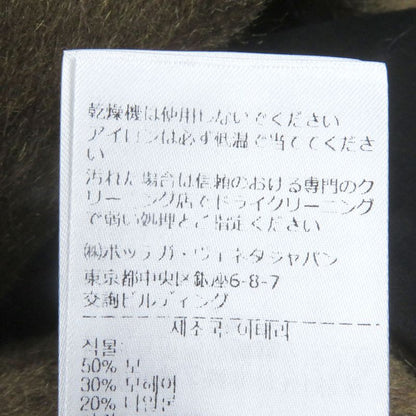 乾燥機は使用しないでください
アイロンは必ず低温で当ててくださ
い
汚れた場合は信頼のおける専門のク
リーニング店でドライクリーニング
で弱い処理とご指定ください
㈱ボッテガ・ヴェネタジャパン
東京都中央区銀座6-8-7
交詢ビルディング
제조국: 이태리
직물:
50% 모
30% 모헤어
20% 나일론